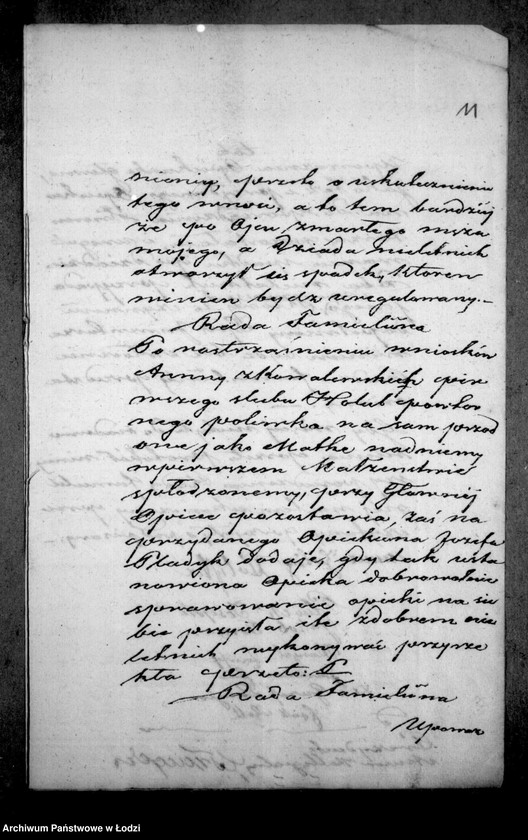 11
nioniy, przeto o uskutecznienie
tego wnosi, a to tem bardziej
że po Ojcu zmarłego męża
mojego, a Dziada nieletnich
otworzył się spadek, któren
winien bydź uregulowany.—
Rada Familijna
Po rostrząśnieniu wniosków
Annny z Kowalewskich pier
wszego ślubu Holub powtor
nego poliwka na sam przód
one jako Matkę nad niemy
w pierwszem Małżeństwie
spłodzonemy, przy Głównej
Opiece pozostawia, zaś na
przydanego Opiekuna Jozefa
Kładyk dodaje, gdy tak usta
nowiona Opieka dobrowolnie
sprawowanie opieki na sie
bie przyjęła i te z dobrem nie
letnich wykonywać przyrze
kła przeto:
Rada Familijna
Upowaz
Archiwum Państwowe w Łodzi
Archiwum Państwowe w Łodzi